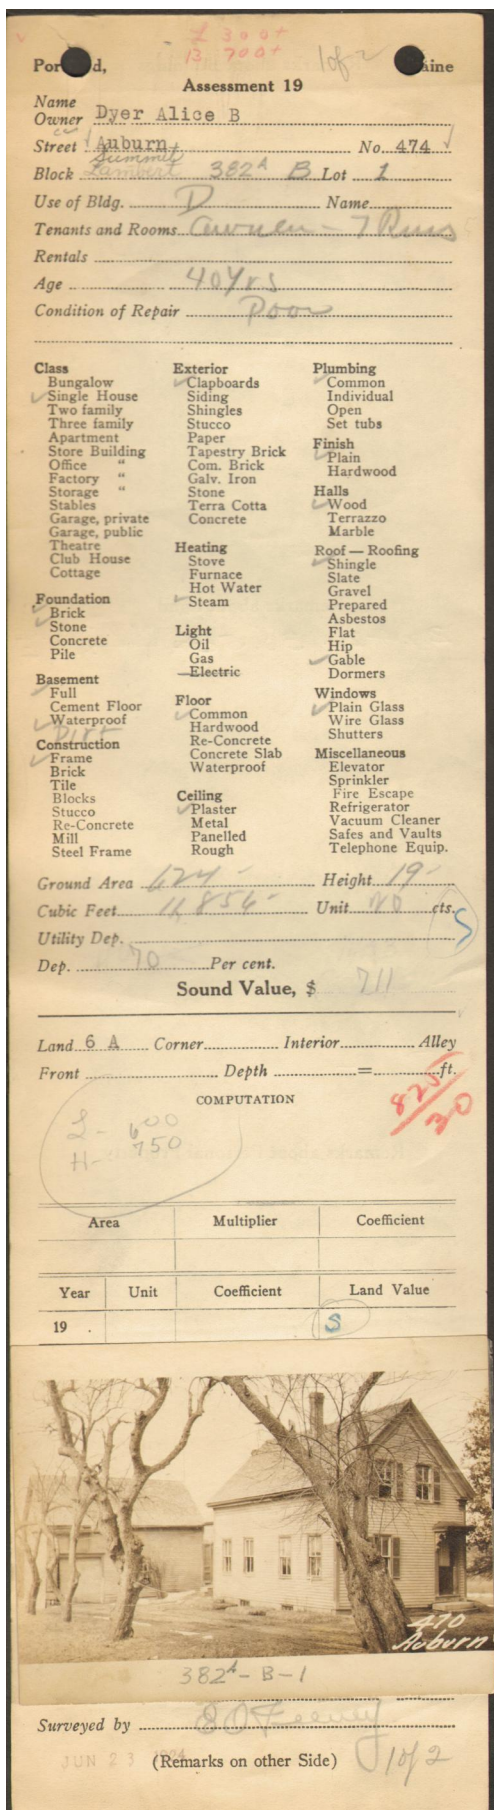 L 300+
B 700+
1 of 2
Por d, aine
Assessment 19
Name
Owner Dyer Alice B
Street Auburn No. 474
Summit
Block Lambert 382A B Lot 1
Use of Bldg. D Name
Tenants and Rooms Owner - 7 Rms
Rentals
Age 40 Yrs
Condition of Repair Poor
Class
Bungalow
Single House
Two family
Three family
Apartment
Store Building
Office "
Factory "
Storage "
Stables
Garage, private
Garage, public
Theatre
Club House
Cottage
Foundation
Brick
Stone
Concrete
Pile
Basement
Full
Cement Floor
Waterproof
Dirt
Construction
Frame
Brick
Tile
Blocks
Stucco
Re-Concrete
Mill
Steel Frame
Exterior
Clapboards
Siding
Shingles
Stucco
Paper
Tapestry Brick
Com. Brick
Galv. Iron
Stone
Terra Cotta
Concrete
Heating
Stove
Furnace
Hot Water
Steam
Light
Oil
Gas
Electric
Floor
Common
Hardwood
Re-Concrete
Concrete Slab
Waterproof
Ceiling
Plaster
Metal
Panelled
Rough
Plumbing
Common
Individual
Open
Set tubs
Finish
Plain
Hardwood
Halls
Wood
Terrazzo
Marble
Roof — Roofing
Shingle
Slate
Gravel
Prepared
Asbestos
Flat
Hip
Gable
Dormers
Windows
Plain Glass
Wire Glass
Shutters
Miscellaneous
Elevator
Sprinkler
Fire Escape
Refrigerator
Vacuum Cleaner
Safes and Vaults
Telephone Equip.
Ground Area 624- Height 19-
Cubic Feet 11,856- Unit 20 cts. S
Utility Dep.
Dep. 70 Per cent.
Sound Value, $ 711
Land 6 A Corner Interior Alley
Front Depth = ft.
COMPUTATION
825/30
L- 600
H- 750
Area Multiplier Coefficient
Year Unit Coefficient Land Value
19 . S
470
Auburn
382A-B-1
Surveyed by
JUN 23 (Remarks on other Side) 1 of 2